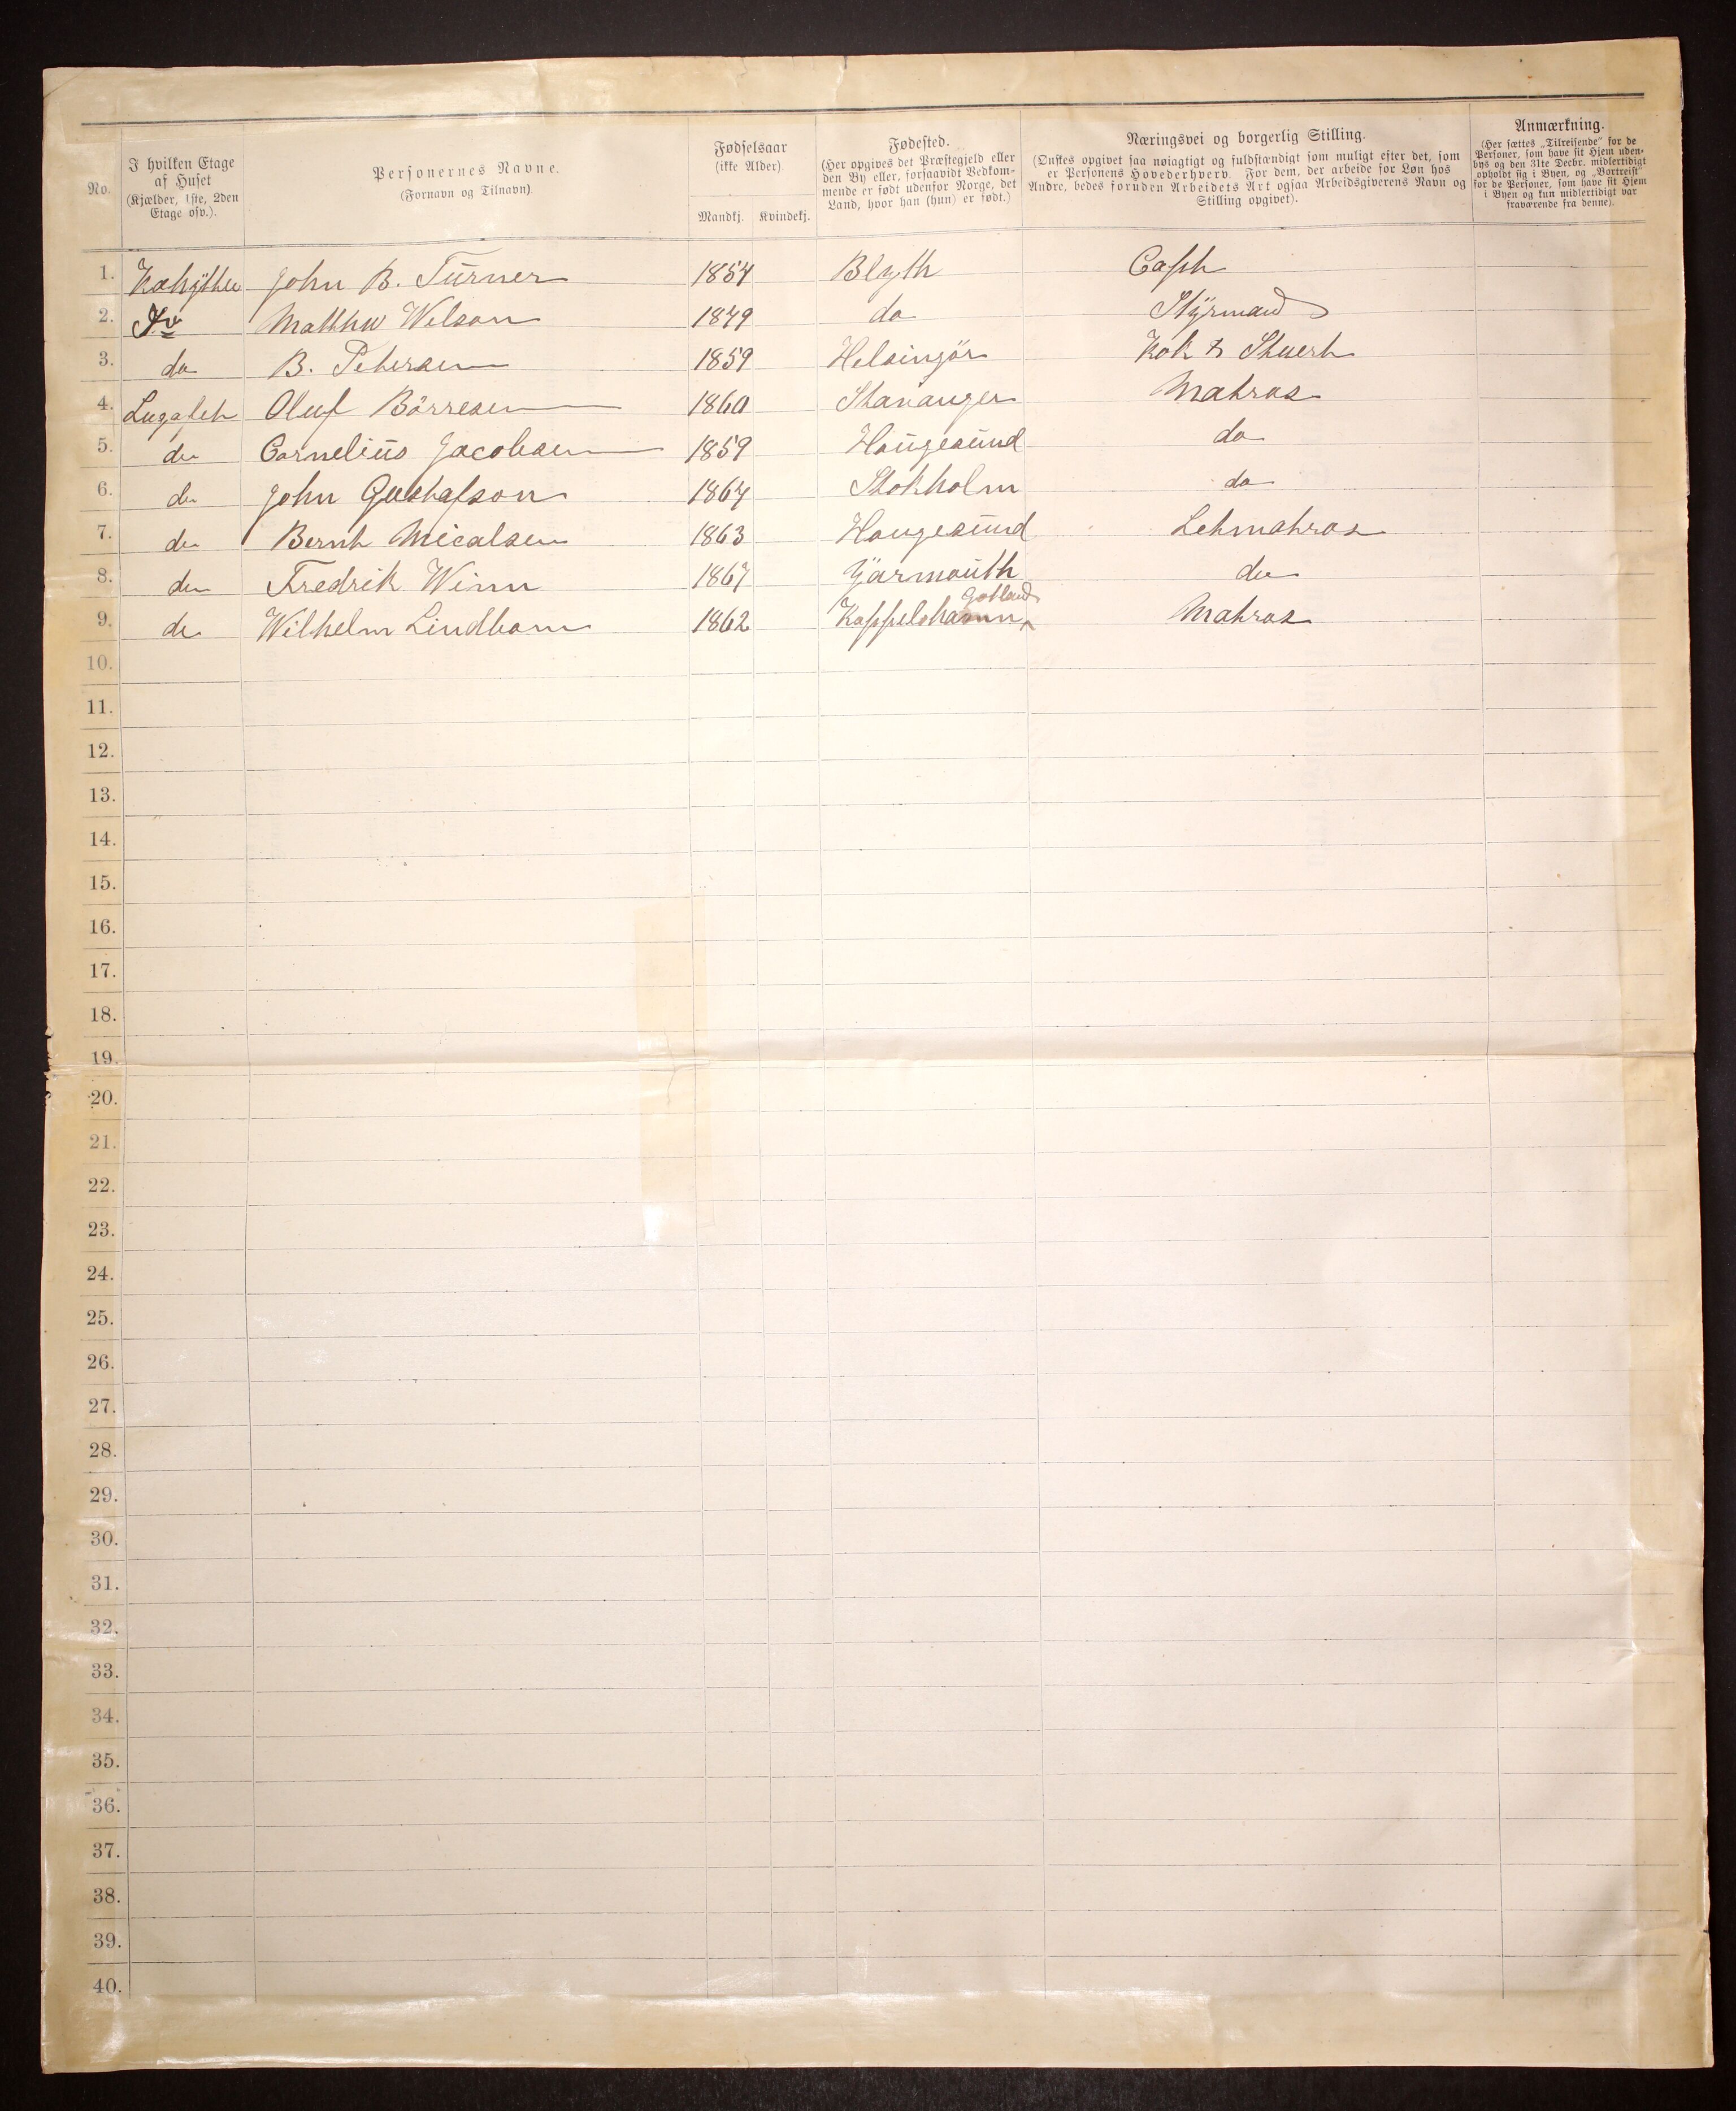 No.
I hvilken Etage
af Huset
(Kjælder, 1ste, 2den
Etage osv.).
Personernes Navne.
(Fornavn og Tilnavn)
Fødselsaar
(ikke Alder)
Mandkj. Kvindekj.
Fødested.
(Her opgives det Præstegjeld eller
den By eller, forsaavidt Vedkom-
mende er født udenfor Norge, det
Land, hvor han (hun) er født.)
Næringsvei og borgerlig Stilling.
(Ønskes opgivet saa nøiagtigt og fuldstændigt som muligt efter det, som
er Personens Hovederhverv. For dem, der arbeide for Løn hos
Andre, bedes foruden Arbeidets Art ogsaa Arbeidsgiverens Navn og
Stilling opgivet).
Anmærkning.
(Her sættes „Tilreisende“ for de
Personer, som have sit Hjem uden-
bys og den 31te Decbr. midlertidigt
opholdt sig i Byen, og „Bortreist“
for de Personer, som have sit Hjem
i Byen og kun midlertidigt var
fraværende fra denne).
1. Kahytten John B. Turner 1854 Blyth Capt
2. Do Matthw Wilson 1849 do Styrmand
3. do B. Petersen 1859 Helsingör Kok & Stuert
4. Lugafet Oluf Börresen 1860 Stavanger Matros
5. do Cornelius Jacobsen 1859 Haugesund do
6. do John Gustafson 1864 Stokholm do
7. do Bernt Micalsen 1863 Haugesund Letmatros
8. do Fredrik Winn 1867 Yarmouth do
Gotland
9. do Wilhelm Lindbom 1862 Kappelshamn Matros
10.
11.
12.
13.
14.
15.
16.
17.
18.
19.
20.
21.
22.
23.
24.
25.
26.
27.
28.
29.
30.
31.
32.
33.
34.
35.
36.
37.
38.
39.
40.